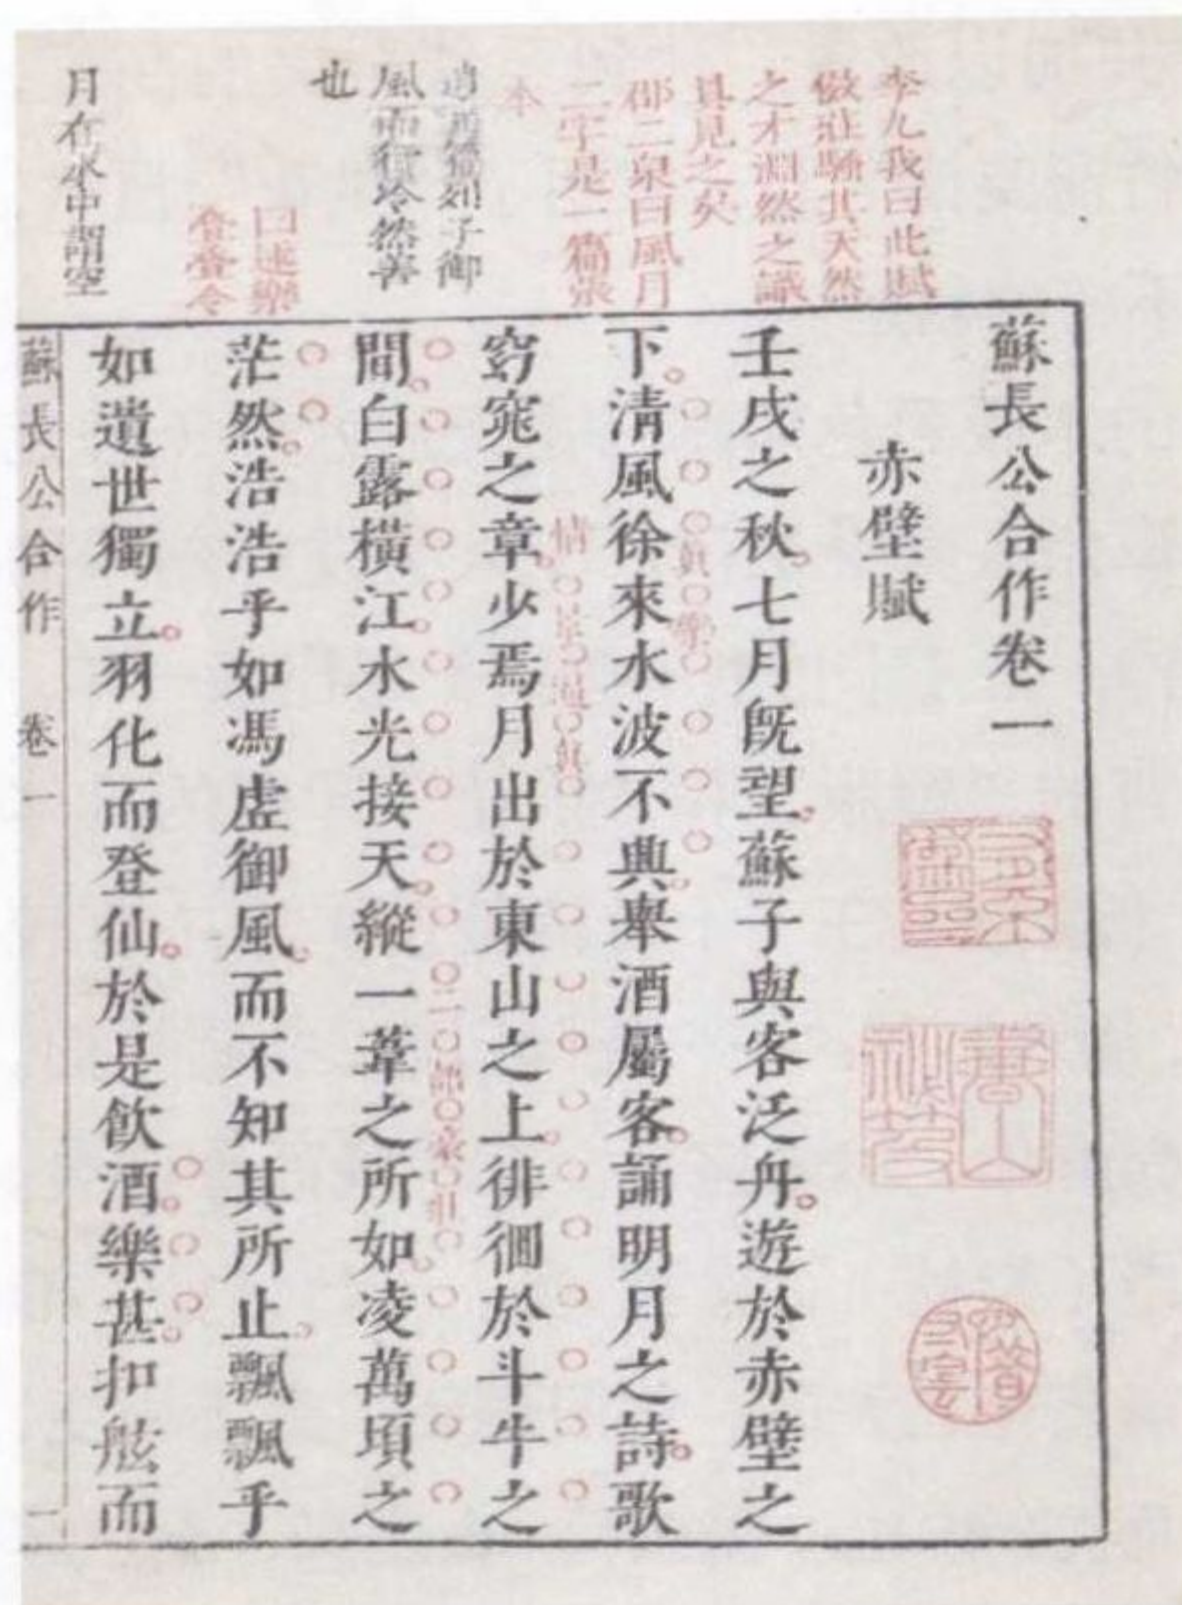 李九我曰此賦
倣莊騷其天然
之才淵然之識
具見之矣
邵二泉曰風月
二字是一篇張
本
逍遙遊列子御
風而行冷然善
也
曰述樂
月在水中謂空
蘇長公合作卷一
赤壁賦
壬戌之秋七月旣望蘇子與客泛舟遊於赤壁之
下清風徐來水波不興舉酒屬客誦明月之詩歌
眞樂
窈窕之章少焉月出於東山之上徘徊於斗牛之
情景逼眞
間白露橫江水光接天縱一葦之所如凌萬頃之
二語豪壯
茫然浩浩乎如馮虛御風而不知其所止飄飄乎
如遺世獨立羽化而登仙於是飲酒樂甚扣舷而
蘇長公合作 卷一 一